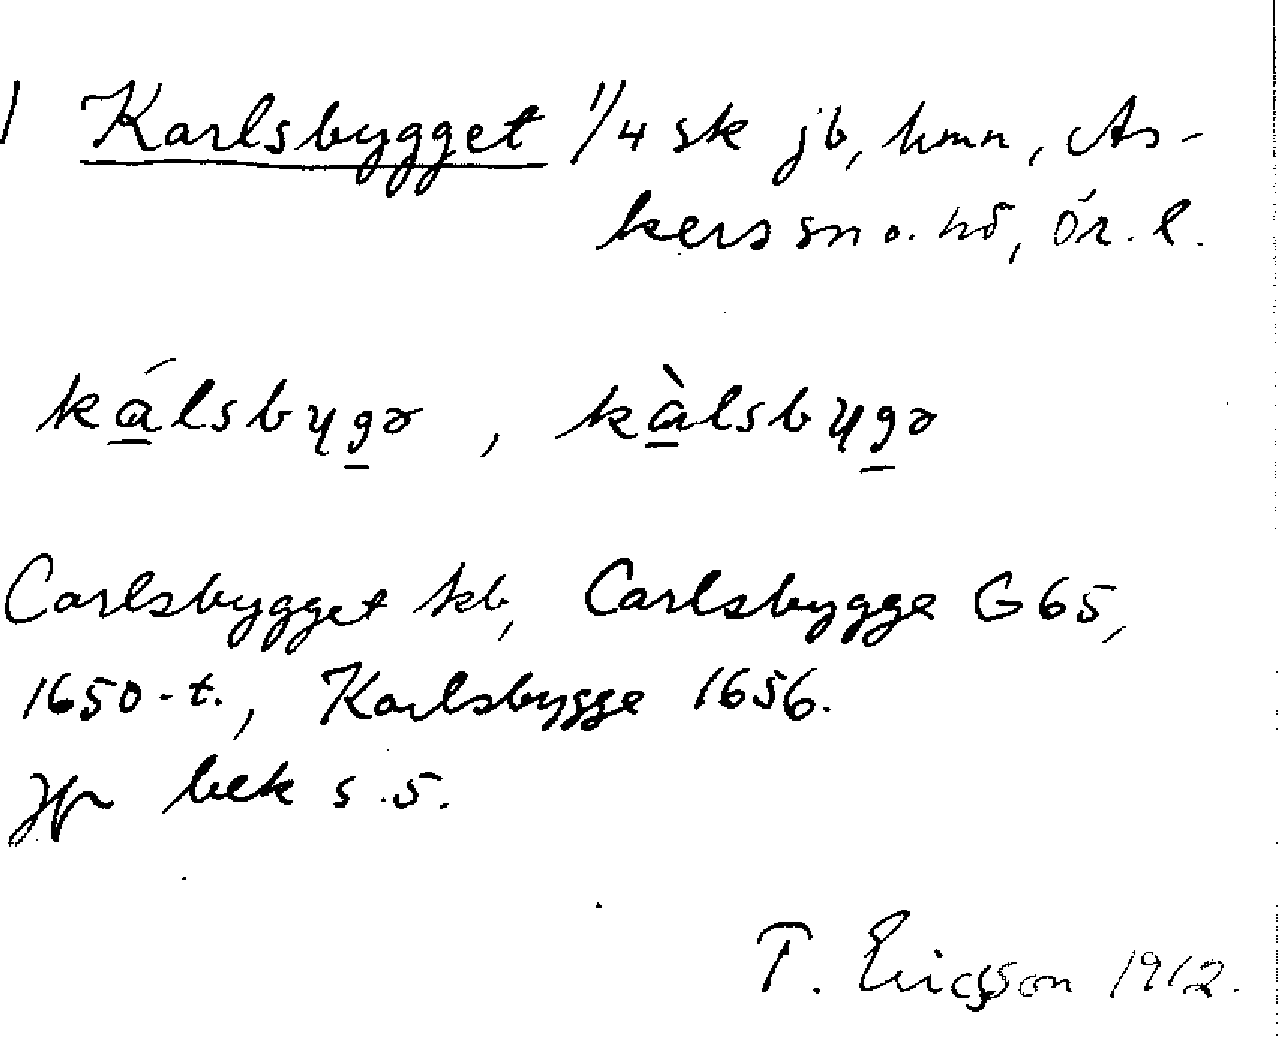 Karlsbygget 1/4 sk jb, hmn, As-
kers sn o. hd, Ör. l.
kálsbygə, kàlsbygə
Carlsbygget kb, Carlsbygge G65,
1650-t., Karlsbygge 1656.
Jfr bek s. 5.
T. Ericsson 1912.